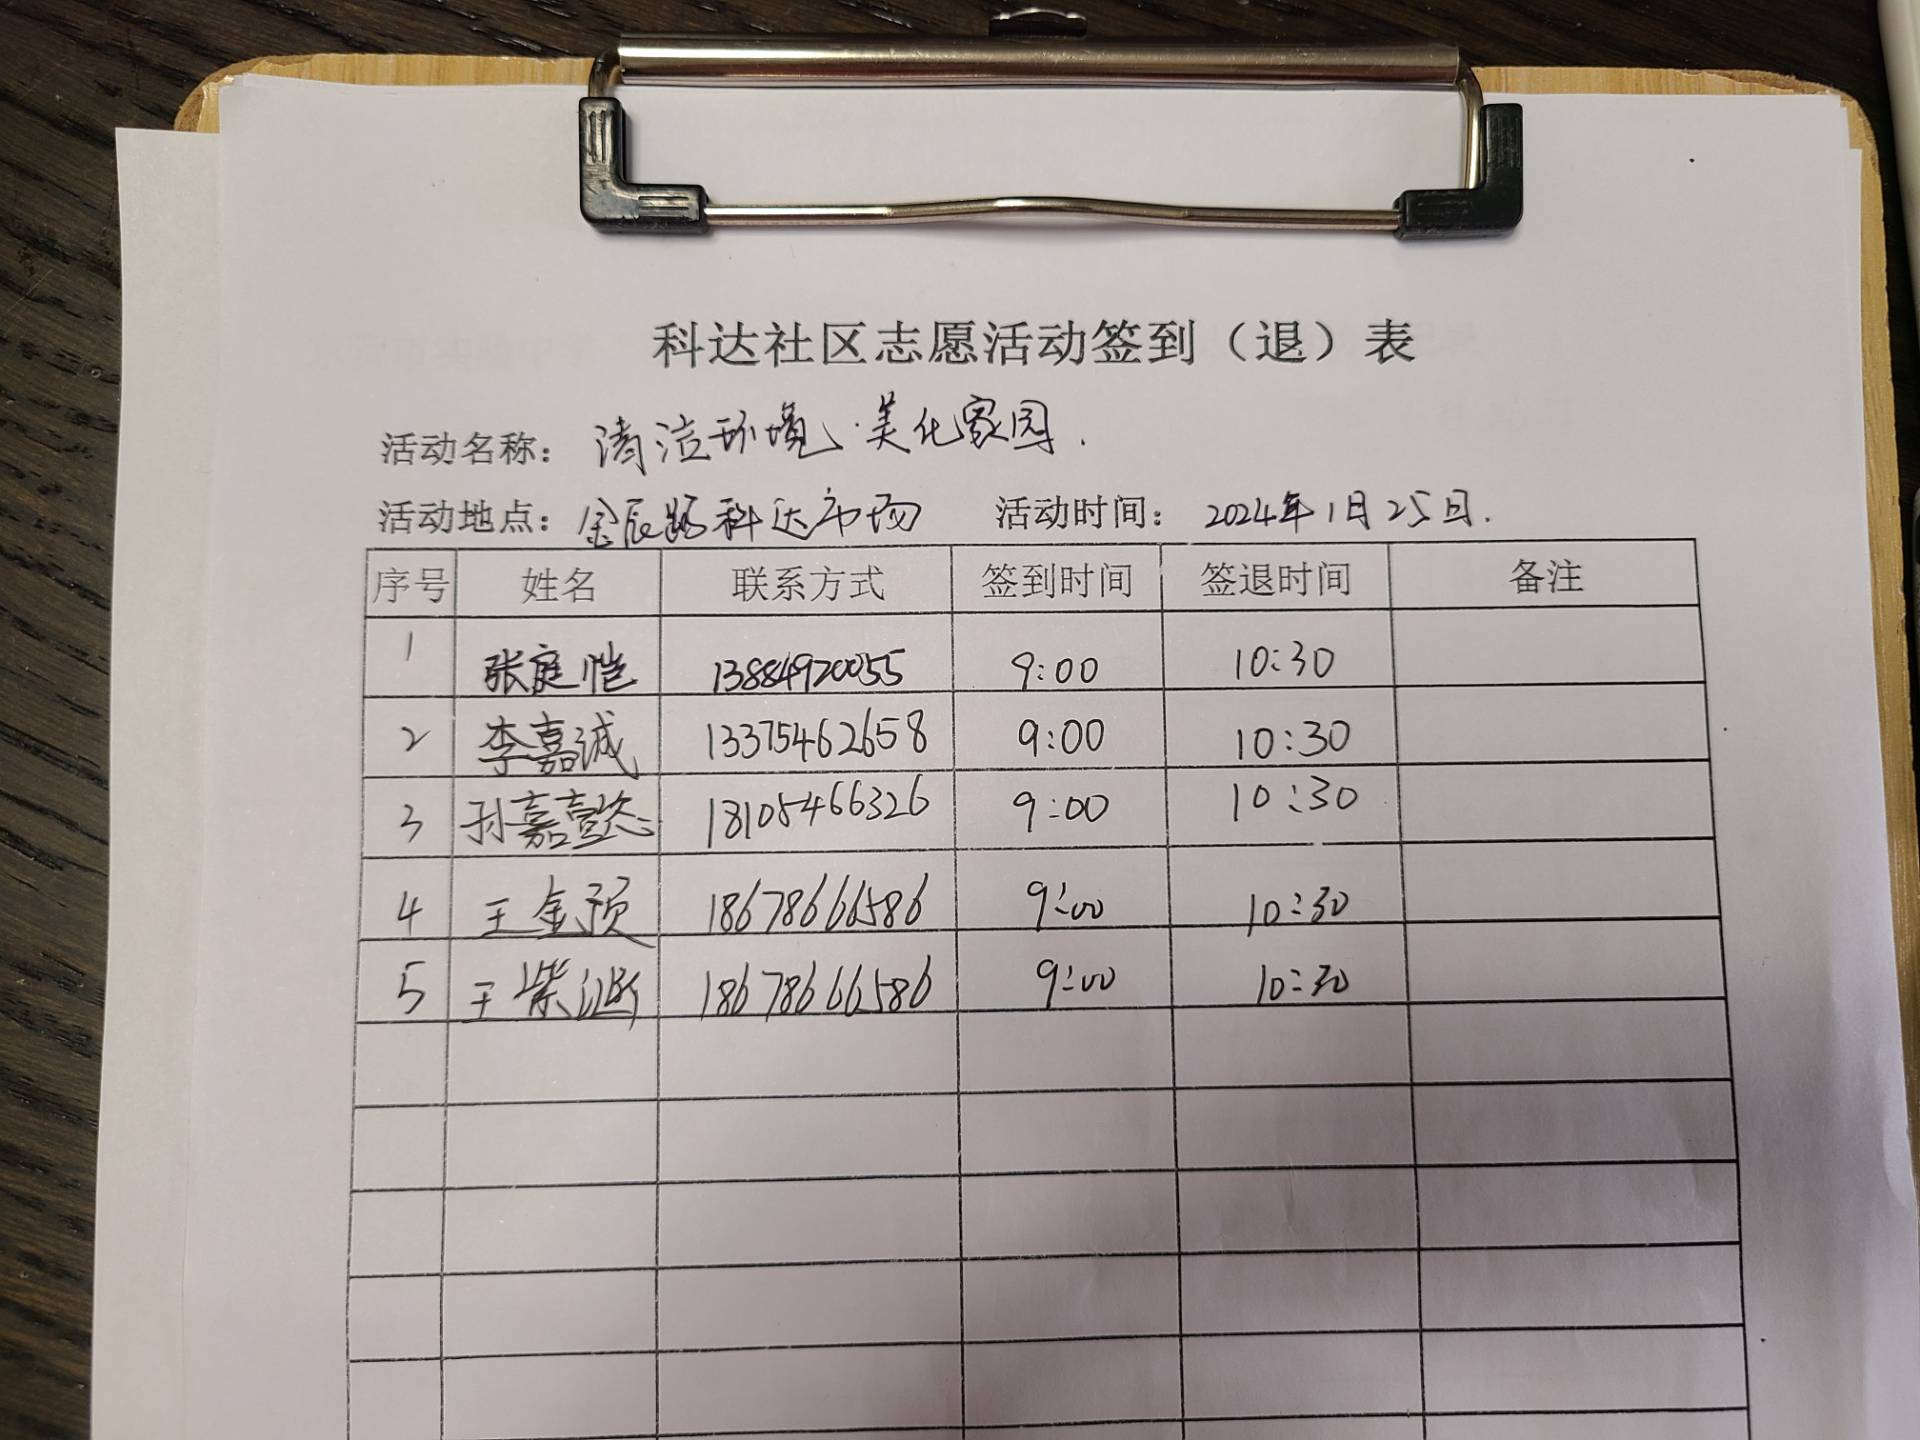 科达社区志愿活动签到（退）表
活动名称： 清洁环境·美化家园.
活动地点： 金辰路科达市场 活动时间： 2024年1月25日.
序号 姓名 联系方式 签到时间 签退时间 备注
1 张庭恺 13884920055 9:00 10:30
2 李嘉诚 13375462658 9:00 10:30
3 孙嘉懿 18105466326 9:00 10:30
4 王金顶 18678666586 9:00 10:30
5 王紫 18678666586 9:00 10:30